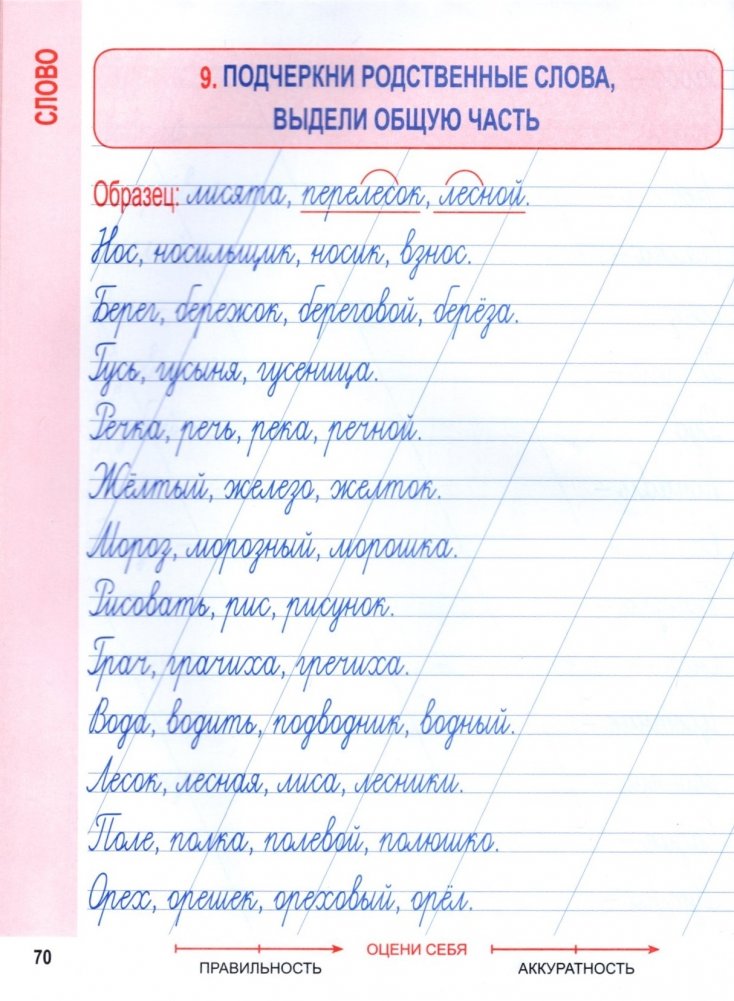 СЛОВО
9. ПОДЧЕРКНИ РОДСТВЕННЫЕ СЛОВА,
ВЫДЕЛИ ОБЩУЮ ЧАСТЬ
Образец: лисята, перелесок, лесной.
Нос, носильщик, носик, взнос.
Берег, бережок, береговой, берёза.
Гусь, гусыня, гусеница.
Речка, речь, река, речной.
Жёлтый, железо, желток.
Мороз, морозный, морошка.
Рисовать, рис, рисунок.
Грач, грачиха, гречиха.
Вода, водить, подводник, водный.
Лесок, лесная, лиса, лесники.
Поле, полка, полевой, полюшко.
Орех, орешек, ореховый, орёл.
70
ПРАВИЛЬНОСТЬ
ОЦЕНИ СЕБЯ
АККУРАТНОСТЬ